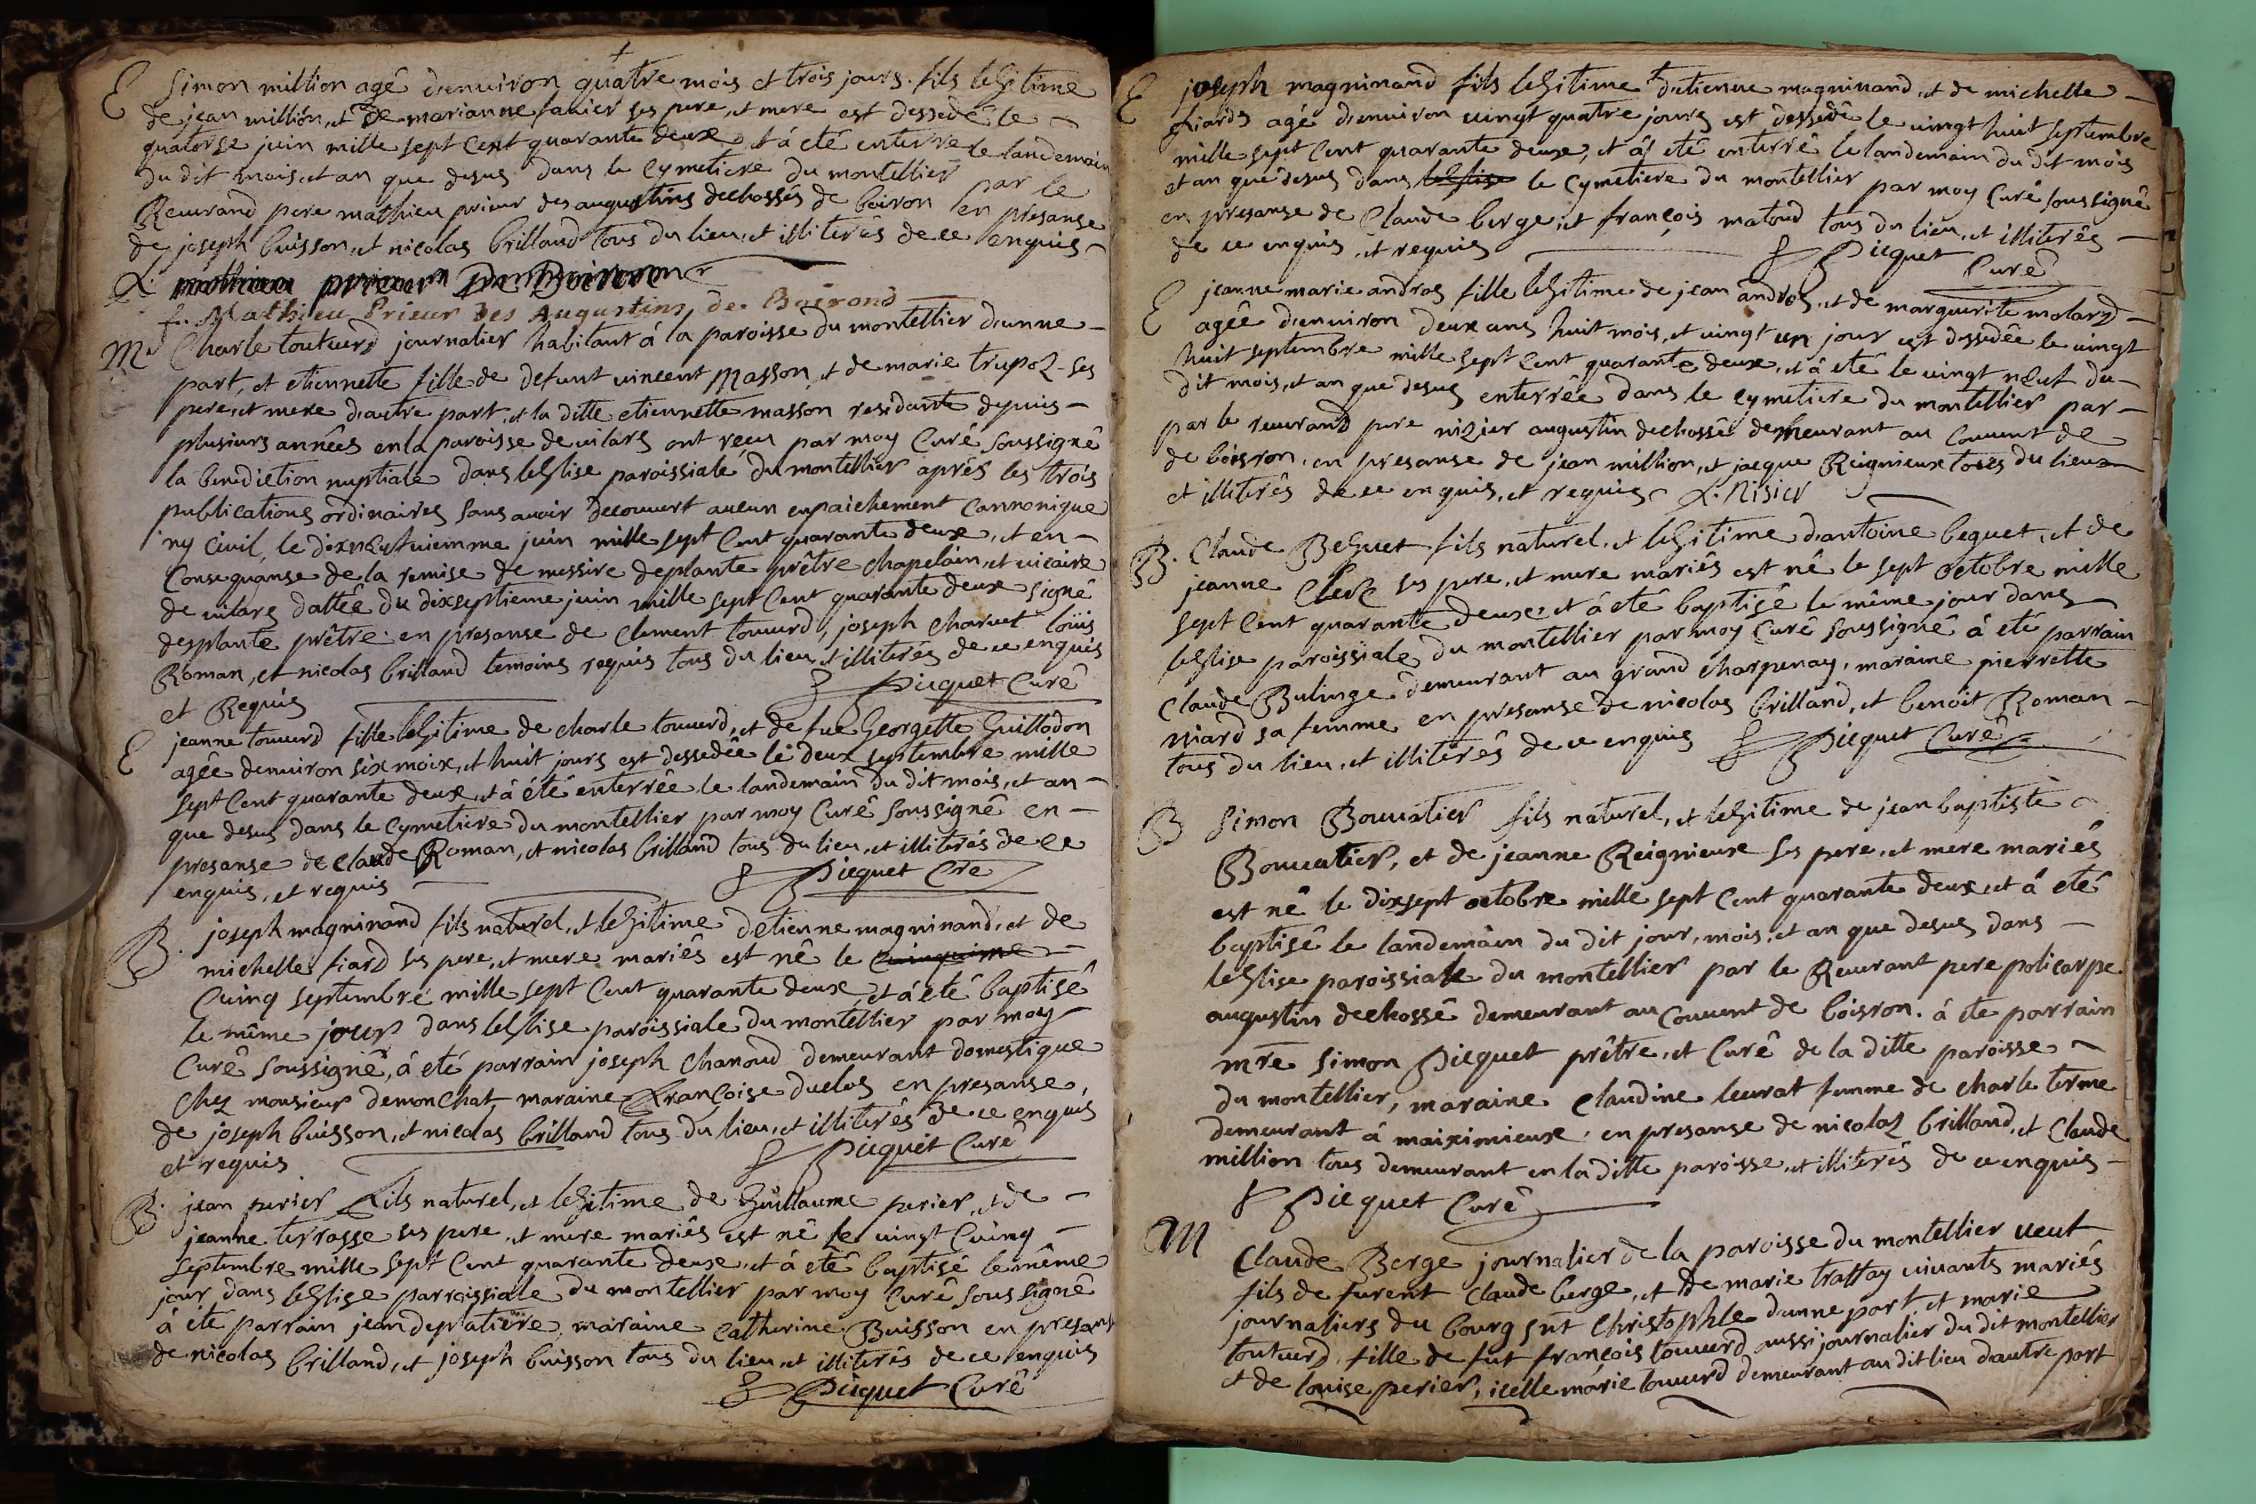 E Simon million agé denuiron quatre mois et trois jours fils lehitime
de jean million, et de marianne fauier ses pere, et mere est dessedé le
quatorse juin mille sept Cent quarante deux, et á eté enterré le landemain
du dit mois, et an que desus dans le Cymetiere du montellier par le
Reuerand pere mathieu prieur des augustins dechossés de boiron en presanse
de joseph buisson, et nicolas brilland tous du lieu, et illiterés de ce enquis
f. Mathieu Prieur des Augustins de
M Charle touuerd journalier habitant á la paroisse du montellier dunne
part, et etiennette fille de defunt vincent Masson, et de marie trupoz ses
pere, et mere dautre part, et la ditte etiennette masson residante depuis
plusieurs années en la paroisse de uilars ont reçu par moy Curé soussigné
la benediction nuptiale dans leglise paroissiale du montellier aprés les trois
publications ordinaires sans auoir decouuert aucun enpaichement Cannonique
ny Ciuil, le juin mille sept Cent quarante deux, et en
Consequanse de la remise de messire deplante prêtre chapelain, et uicaire
de uilars dattée du dixseptieme juin mille sept Cent quarante deux signé
desplante prêtre en presanse de Clement touuerd, joseph Charuet louis
Roman, et nicolas brilland temoins requis tous du lieu, et illiterés de ce enquis
et Requis Picquet Curé
E jeanne touuerd fille lehitime de charle touuerd, et de fue Georgette Guillodon
agée denuiron six moix, et huit jours est dessedée le deux septembre mille
sept Cent quarante deux, et á été enterrée le landemain du dit mois, et an
que desus dans le Cymetiere du montellier par moy Curé soussigné en
presanse de Claude Roman, et nicolas brilland tous du lieu, et illiterés de ce
enquis, et requis Picquet Cre
B. joseph magninand fils naturel, et lehitime detienne magninand, et de
michelle fiard ses pere, et mere mariés est né le
Cuinq septembre mille sept Cent quarante deux, et á eté baptisé
le même jour dans leglise paroissiale du montellier par moy
Curé soussigné, á eté parrain joseph Chanoud demeurant domestique
Chez monsieur demonchat maraine françoise duclos en presanse
de joseph buisson, et nicolas brilland tous du lieu, et illiterés de ce enquis
et requis Picquet Curé
B. jean perier fils naturel, et lehitime de Guillaume perier, et de
jeanne terrasse ses pere, et mere mariés est né le uingt Cuinq
septembre mille sept Cent quarante deux, et á eté baptisé le même
jour dans leglise parroissiale du montellier par moy Curé soussigné
á eté parrain jean deplatiere, maraine Catherine Buisson en presanse
de nicolas brilland, et joseph buisson tous du lieu, et illiterés de ce enquis
Picquet Curé
E joseph magninand fils lehitime detienne magninand, et de michelle
fiards agé denuiron uingt quatre jours est dessedé le uingt huit septembre
mille sept Cent quarante deux, et á eté enterré le landemain du dit mois
et an que desus dans leglise le Cymetiere du montellier par moy Curé soussigné
en presanse de Claude berge, et françois matoud tous du lieu, et illiterés
de ce enquis, et requis Picquet Curé
E jeanne marie andros fille lehitime de jean andros, et de marguerite molard
agée denuiron deux ans huit mois, et uingt un jour est dessedée le uingt
huit septembre mille sept Cent quarante deux, et á eté le uingt neuf du
dit mois, et an que desus enterrée dans le cymetiere du montellier par
par le reuerand pere nizier augustin dechossé demeurant au Couuent de
de boisron, en presanse de jean million, et jacque Reignieux tous du lieu
et illiterés de ce enquis, et requis f. Nisier
B. Claude Beguet fils naturel, et lehitime dantoine beguet, et de
jeanne Clerc ses pere, et mere mariés est né le sept octobre mille
sept Cent quarante deux, et á eté baptisé le même jour dans
leglise paroissiale du montellier par moy Curé soussigné á eté parrain
Claude Bulinge demeurant au grand Charpenay, maraine pierrette
niard sa femme en presanse de nicolas brilland, et benoit Roman
tous du lieu, et illiterés de ce enquis Picquet Curé
B Simon Bouuatier fils naturel, et lehitime de jean baptiste
Bouuatier, et de jeanne Reignieux ses pere, et mere mariés
est né le dixsept octobre mille sept Cent quarante deux, et á eté
baptisé le landemain du dit jour, mois, et an que desus dans
leglise paroissiale du montellier par le Reuerant pere policarpe
augustin dechossé demeurant au Couuent de boisron. á eté parrain
mre Simon Picquet prêtre, et Curé de la ditte paroisse
du montellier, maraine Claudine leurat femme de Charle terme
demeurant á maiximieux, en presanse de nicolas brilland, et Claude
million tous demeurant en la ditte paroisse, et illiterés de ce enquis
Picquet Curé
M Claude Berge journalier de la paroisse du montellier ueut
fils de furent Claude berge, et de marie trattay uiuants mariés
journaliers du bourg snt Christophle dunne part, et marie
touuerd fille de fut françois touuerd aussi journalier du dit montellier
et de louise perier, icelle marie touuerd demeurant au dit lieu dautre part